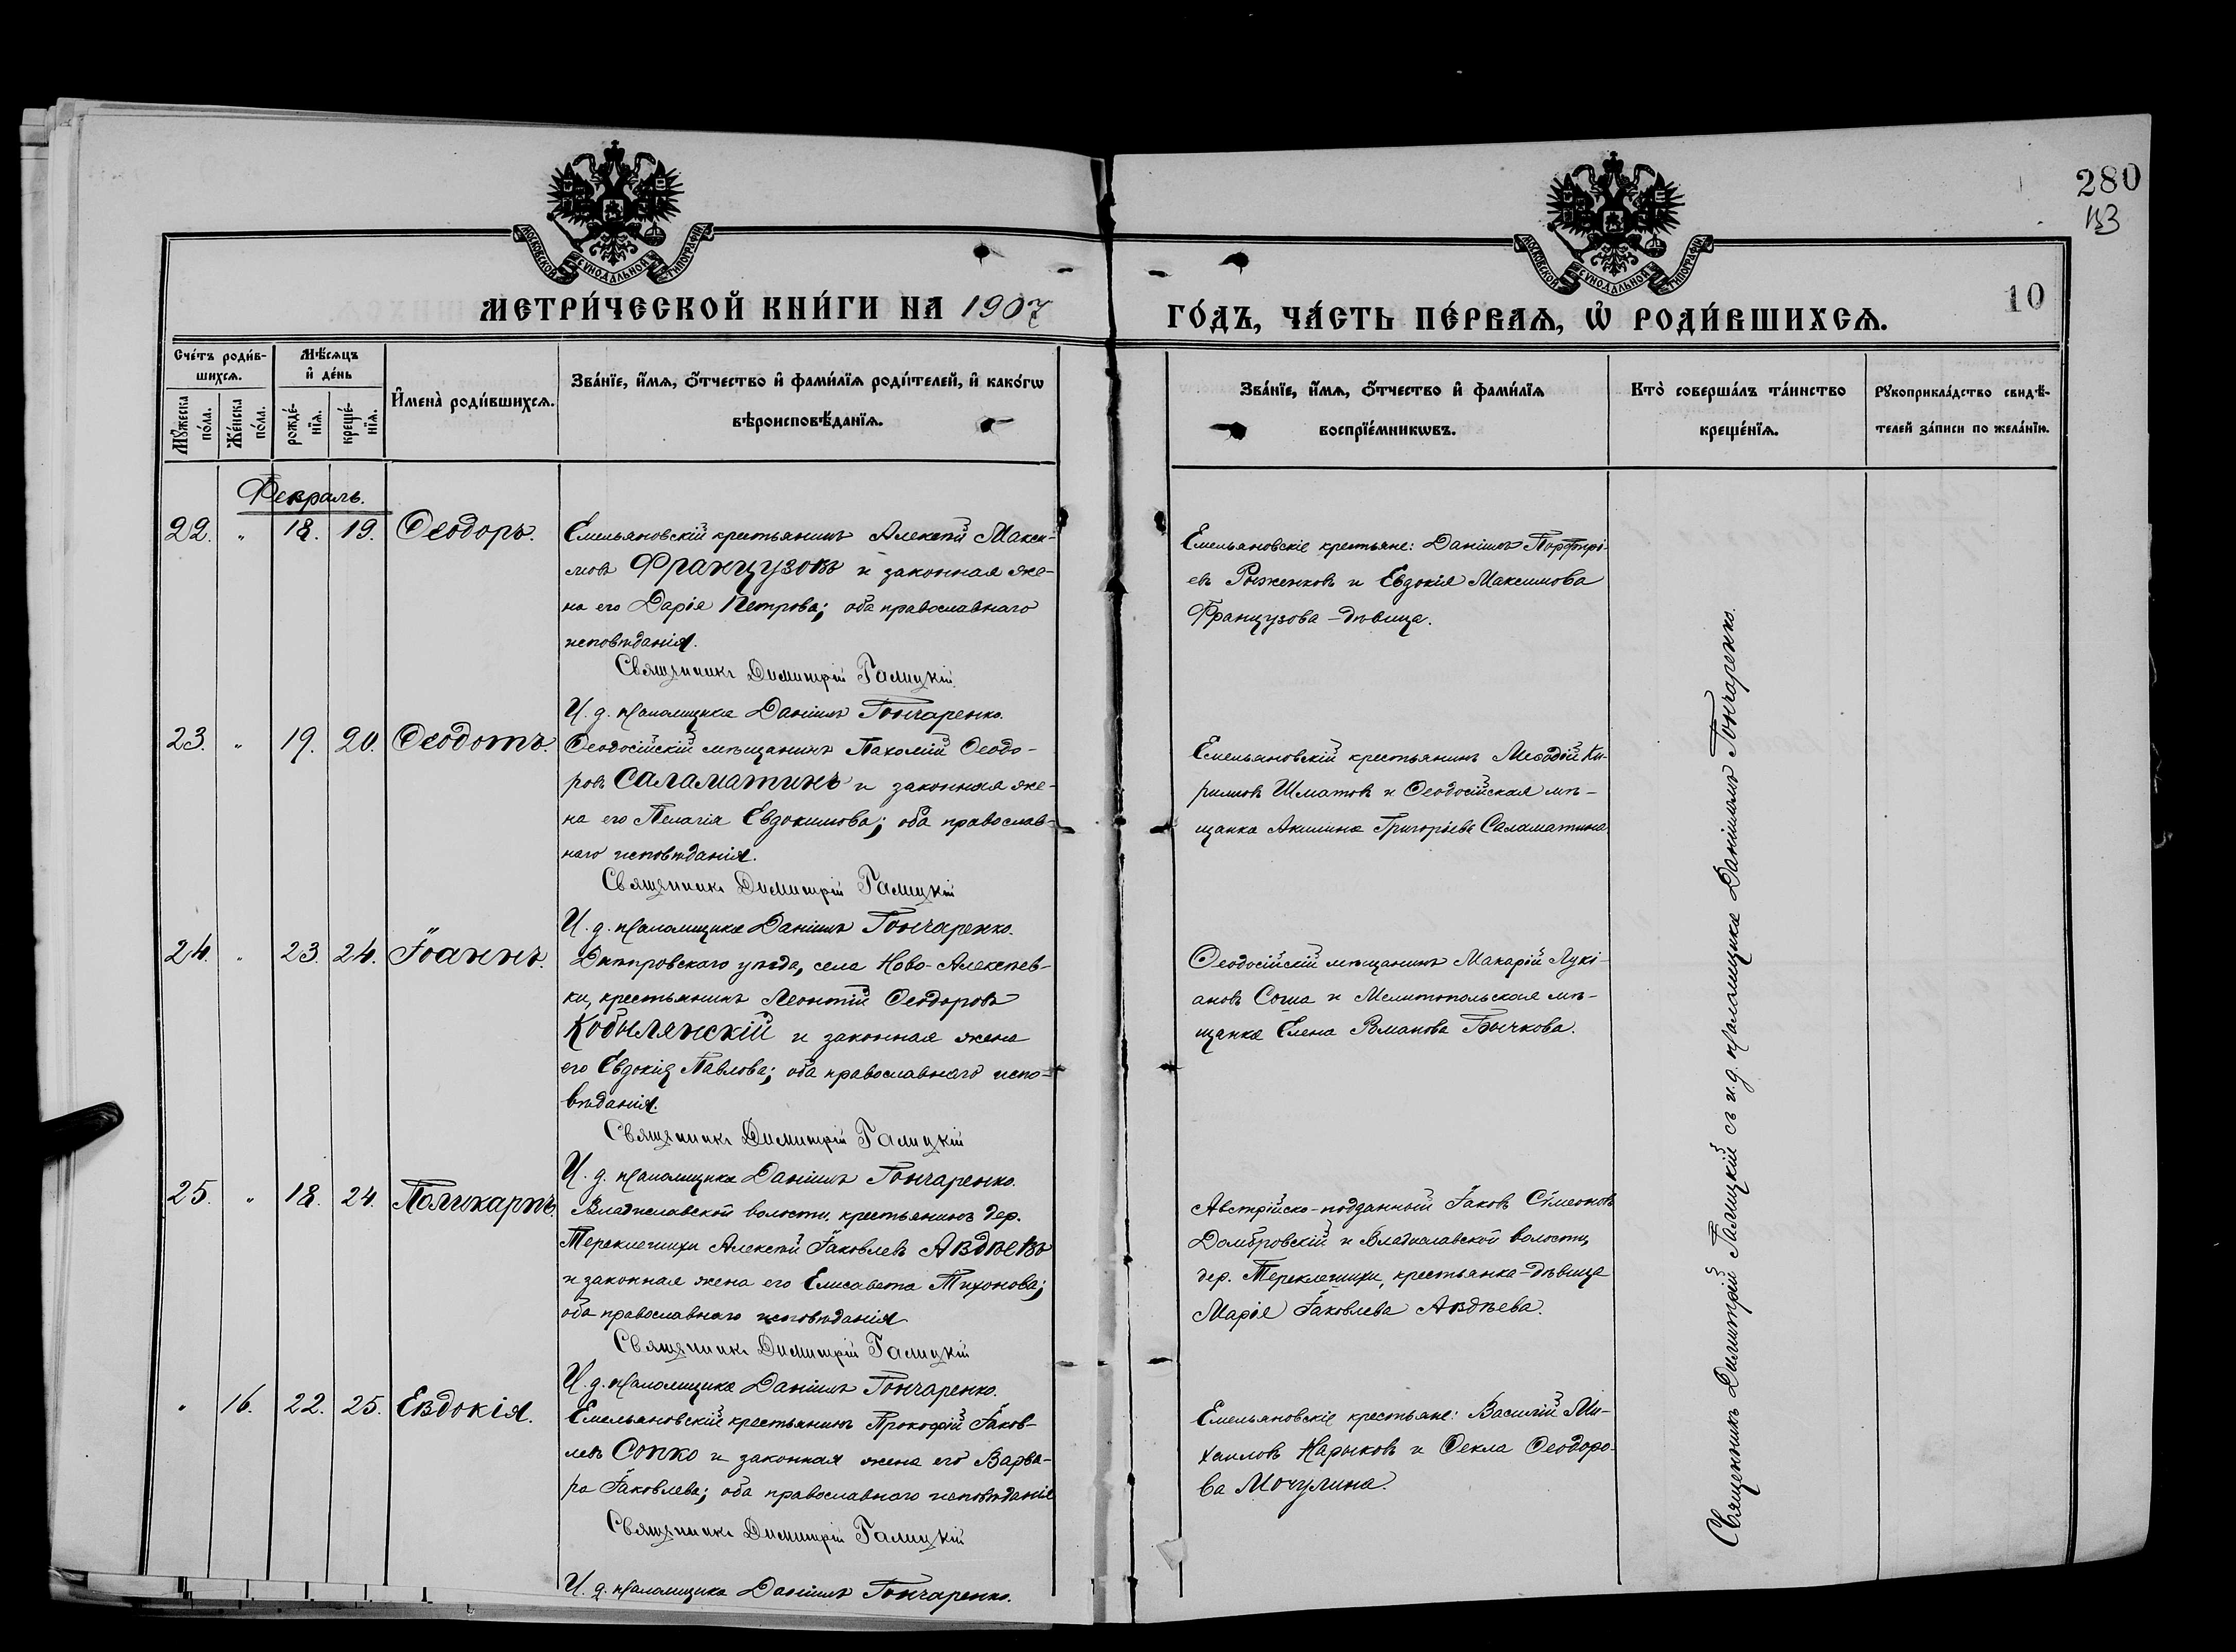 280
113
10
МОСКОВСКОЙ СѴНОДАЛЬНОЙ ТИПОГРАФІИ
МОСКОВСКОЙ СѴНОДАЛЬНОЙ ТИПОГРАФІИ
МЕТРИ́ЧЕСКОЙ КНИ́ГИ НА 1907
ГО́ДЪ, ЧА́СТЬ ПЕ́РВАѦ, Ѡ҆ РОДИ́ВШИХСѦ.
Сче́тъ роди́в-
шихсѧ.
Мꙋ́жеска по́ла.
Же́нска по́ла.
Мѣ́сѧцъ
и҆ де́нь
рожде́-
нїѧ.
креще́-
нїѧ.
И҆мена̀ роди́вшихсѧ.
Зва́нїе, и҆́мѧ, ѻ҆́тчество и҆ фами́лїѧ роди́телей, и҆ како́гѡ
вѣроисповѣ́данїѧ.
Зва́нїе, и҆́мѧ, ѻ҆́тчество и҆ фами́лїѧ
воспрїе́мникѡвъ.
Кто̀ соверша́лъ та́инство
креще́нїѧ.
Рꙋкоприкла́дство свидѣ́-
телей за́писи по жела́нїю.
Февраль.
22. " 18. 19. Ѳеодоръ.
Емельяновскій крестьянинъ Алексѣй Макси-
мовъ Французовъ и законная же-
на его Дарія Петрова; оба православнаго
исповѣданія.
Священникъ Димитрій Галицкій
И. д. псаломщика Даніилъ Гончаренко.
Емельяновскіе крестьяне: Даніилъ Порфирі-
евъ Рыженковъ и Евдокія Максимова
Французова - дѣвица.
23. " 19. 20. Ѳеодотъ.
Ѳеодосійскій мѣщанинъ Пахомій Ѳеодо-
ровъ Саламатинъ и законная же-
на его Пелагія Евдокимова; оба православ-
наго исповѣданія.
Священникъ Димитрій Галицкій
И. д. псаломщика Даніилъ Гончаренко.
Емельяновскій крестьянинъ Меѳодій Ки-
рилловъ Шматовъ и Ѳеодосійская мѣ-
щанка Акилина Григорьева Саламатина
24. " 23. 24. Іоаннъ.
Днѣпровскаго уѣзда, села Ново-Алексѣев-
ки, крестьянинъ Леонтій Ѳеодоровъ
Кобылянскій и законная жена
его Евдокія Павлова; оба православнаго испо-
вѣданія.
Священникъ Димитрій Галицкій
И. д. псаломщика Даніилъ Гончаренко.
Ѳеодосійскій мѣщанинъ Макарій Лукі-
ановъ Соша и Мелитопольская мѣ-
щанка Елена Романова Бычкова.
25. " 18. 24. Поликарпъ.
Владиславской волости, крестьянинъ дер.
Переклетихи Алексѣй Іаковлевъ Авдѣевъ
и законная жена его Елисавета Тихонова;
оба православнаго исповѣданія
Священникъ Димитрій Галицкій
И. д. псаломщика Даніилъ Гончаренко.
Австрійско-подданный Іаковъ Сѵмеоновъ
Домбровскій и Владиславской волости,
дер. крестьянка-дѣвица
Марія Іаковлева Авдѣева.
" 16. 22. 25. Евдокія.
Емельяновскій крестьянинъ Прокофій Іаков-
левъ Сопко и законная жена его Варва-
ра Іаковлева; оба православнаго исповѣданія
Священникъ Димитрій Галицкій
И. д. псаломщика Даніилъ Гончаренко.
Емельяновскіе крестьяне: Василій Ми-
хаиловъ Нарыковъ и Ѳекла Ѳеодоро-
ва Мочулина.
Священникъ Димитрій Галицкій съ и. д. псаломщика Даніиломъ Гончаренко.